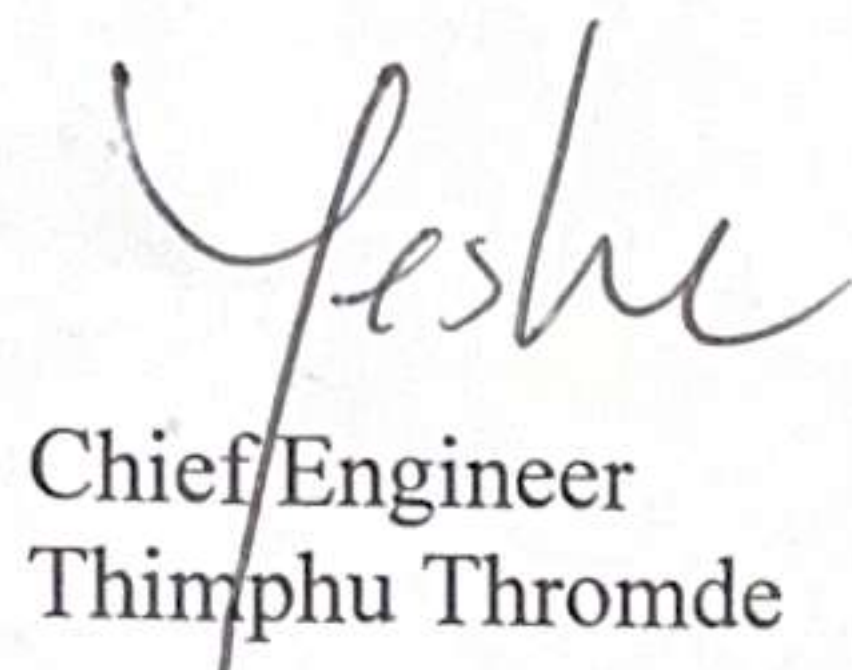 Yeshe
Chief Engineer
Thimphu Thromde